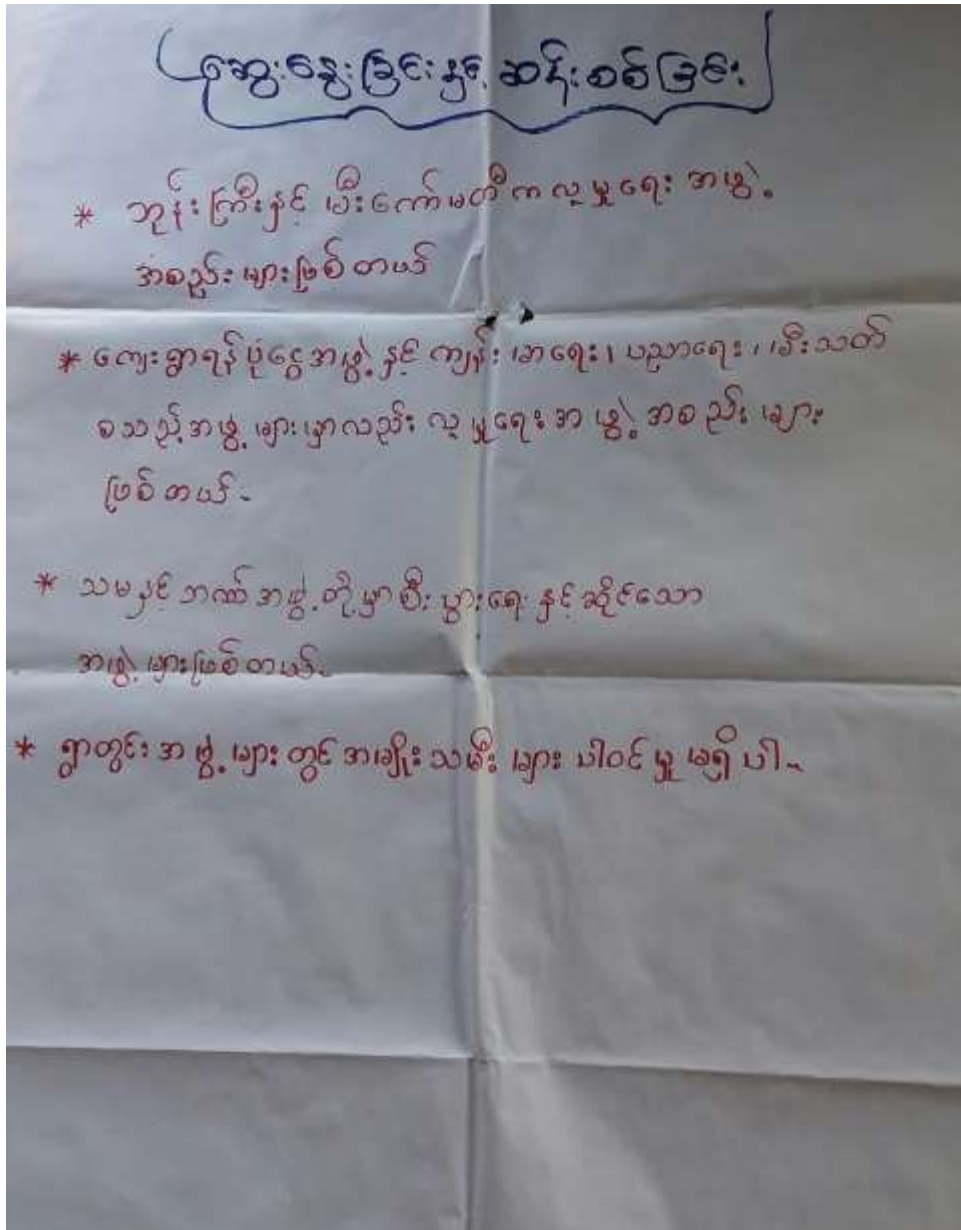 ဆွေးနွေးခြင်းနှင့် ဆန်းစစ်ခြင်း
* ဘုန်းကြီးနှင့် မီးကော်မတီက လူမှုရေး အဖွဲ့
အစည်း များဖြစ်တယ်
* ကျေးရွာရန်ပုံငွေအဖွဲ့ နှင့် ကျန်းမာရေး၊ ပညာရေး၊ မီးသတ်
စသည့်အဖွဲ့ များမှာလည်း လူမှုရေးအဖွဲ့ အစည်း များ
ဖြစ်တယ်-
* သမနှင့် ဘဏ် အဖွဲ့ တို့မှာ စီးပွားရေး နှင့် ဆိုင်သော
အဖွဲ့ များဖြစ်တယ်-
* ရွာတွင်း အဖွဲ့ များ တွင် အမျိုးသမီး များ ပါဝင်မှု မရှိပါ-